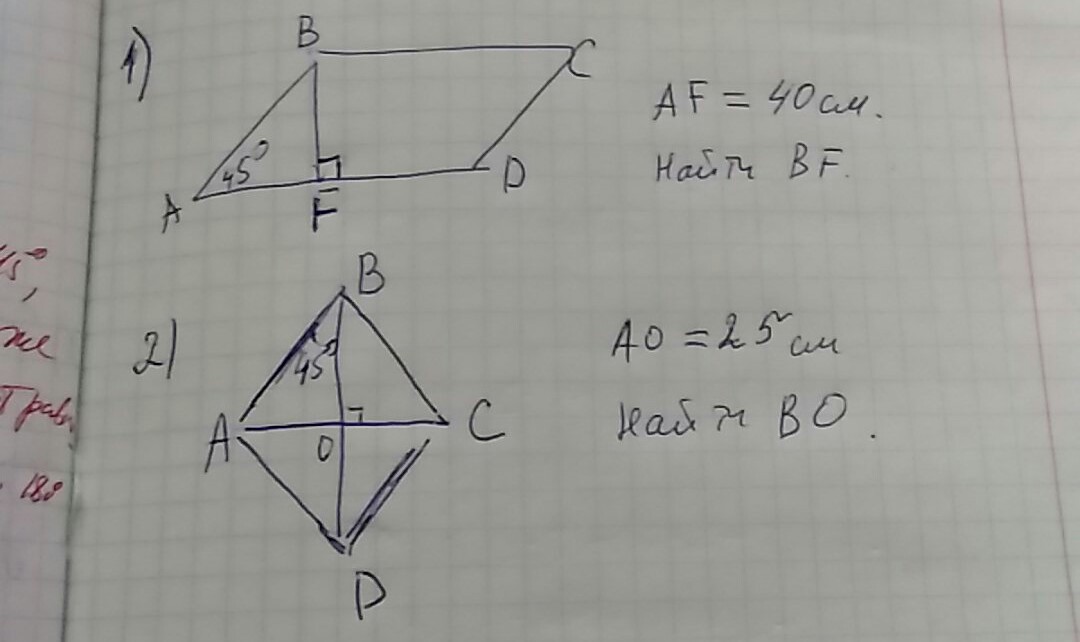 45°,
же
1)
B
C
45°
A
F
D
AF = 40 см.
Найти BF.
2)
B
45°
A
O
C
D
AO = 25 см
Найти BO.
180